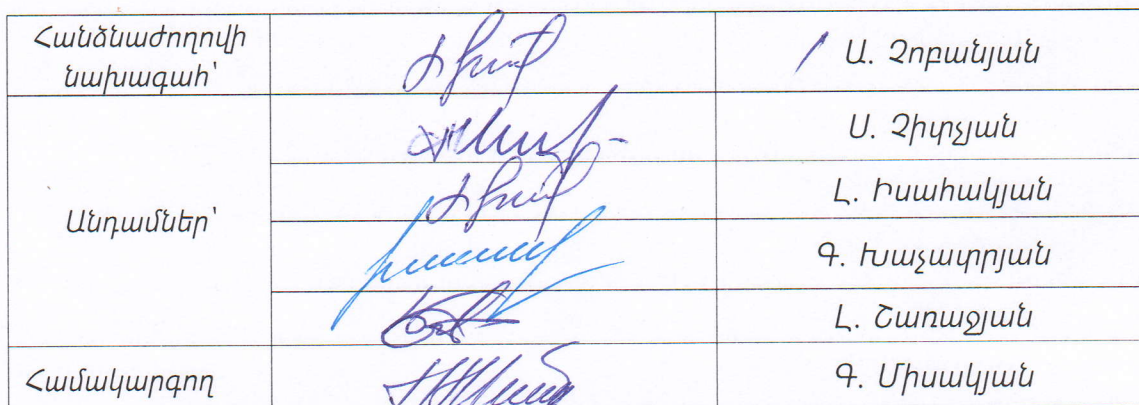 Հանձնաժողովի
նախագահ՝
Ա. Չոբանյան
Ս. Չիտչյան
Անդամներ՝
Լ. Իսահակյան
Գ. Խաչատրյան
Լ. Շառաջյան
Համակարգող
Գ. Միսակյան